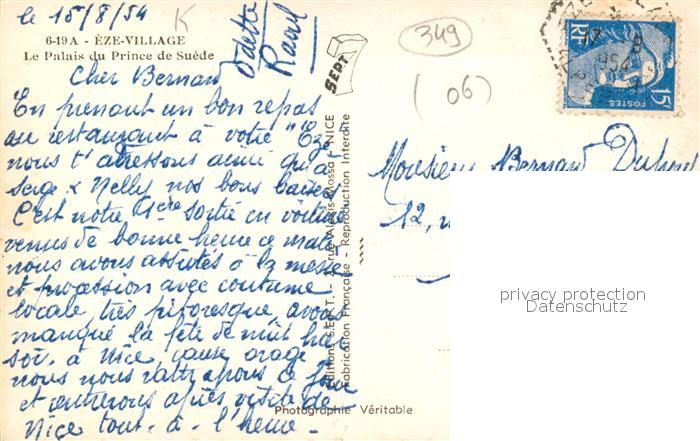 le 15/8/54
K
6-19 A - ÈZE-VILLAGE
Le Palais du Prince de Suède
Cher Bernard
Odette
Raoul
En prenant un bon repas
au restaurant à votre "Eze"
nous t'adressons ainsi qu'à
Serge & Nelly nos bons baisers
C'est notre 1ère sortie en voiture
venus de bonne heure ce matin
nous avons assistés à la messe
et procession avec coutume
locale, très pittoresque, avons
manqué la fête de nuit hier
soir à Nice, cause orage
nous nous rattrapons ce jour
et entrerons après visite de
Nice tout-à-l'heure -
SEPT
Editions S.E.P.T. - rue Alexis-Mossa - NICE
Fabrication Française - Reproduction Interdite
Photographie Véritable
349
(06)
RF
954
POSTES
15F
Monsieur Bernard
12,
privacy protection
Datenschutz